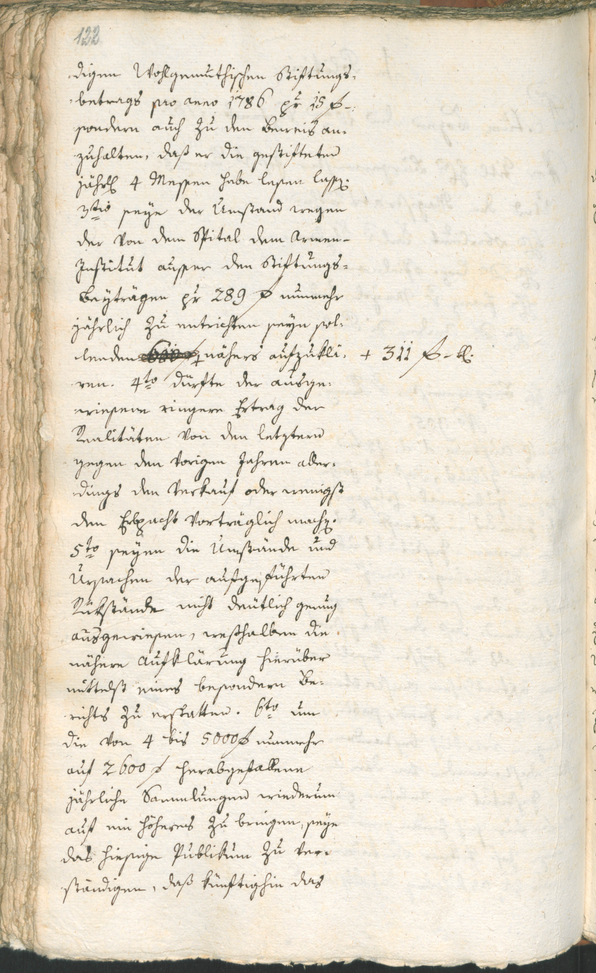 122
digen Wohlgemuthischen Stiftungs-
betrags pro anno 1786 pr 15 f -
sondern auch zu den Beweis an-
zuhalten, daß er die gestifteten
jährl 4 Messen habe lesen lassen.
3tio seye der Umstand wegen
der von dem Spital dem Armen-
Institut ausser den Stiftungs-
beyträgen pr 289 f nunmehr
jährlich zu entrichten seyn sol-
lenden nähers aufzukla- + 311 f - k.
ren. 4to dürfte der ausge-
wiesene ringere Ertrag der
Realitäten von den letztern
gegen den vorigen Jahren aller-
dings den Verkauf oder wenigst
den Erbpacht vorträglich machen.
5to seyen die Umstände und
Ursachen der aufgeführten
Rükstände nicht deutlich genug
ausgewiesen, weßhalben die
nähere Aufklärung hierüber
mittelst eines besondern Be-
richts zu erstatten. 6to um
die von 4 bis 5000 f nunmehr
auf 2600 f herabgefallene
jährliche Sammlungen wiederum
auf ein höheres zu bringen, seye
das hiesige Publikum zu ver-
ständigen, daß künftighin das